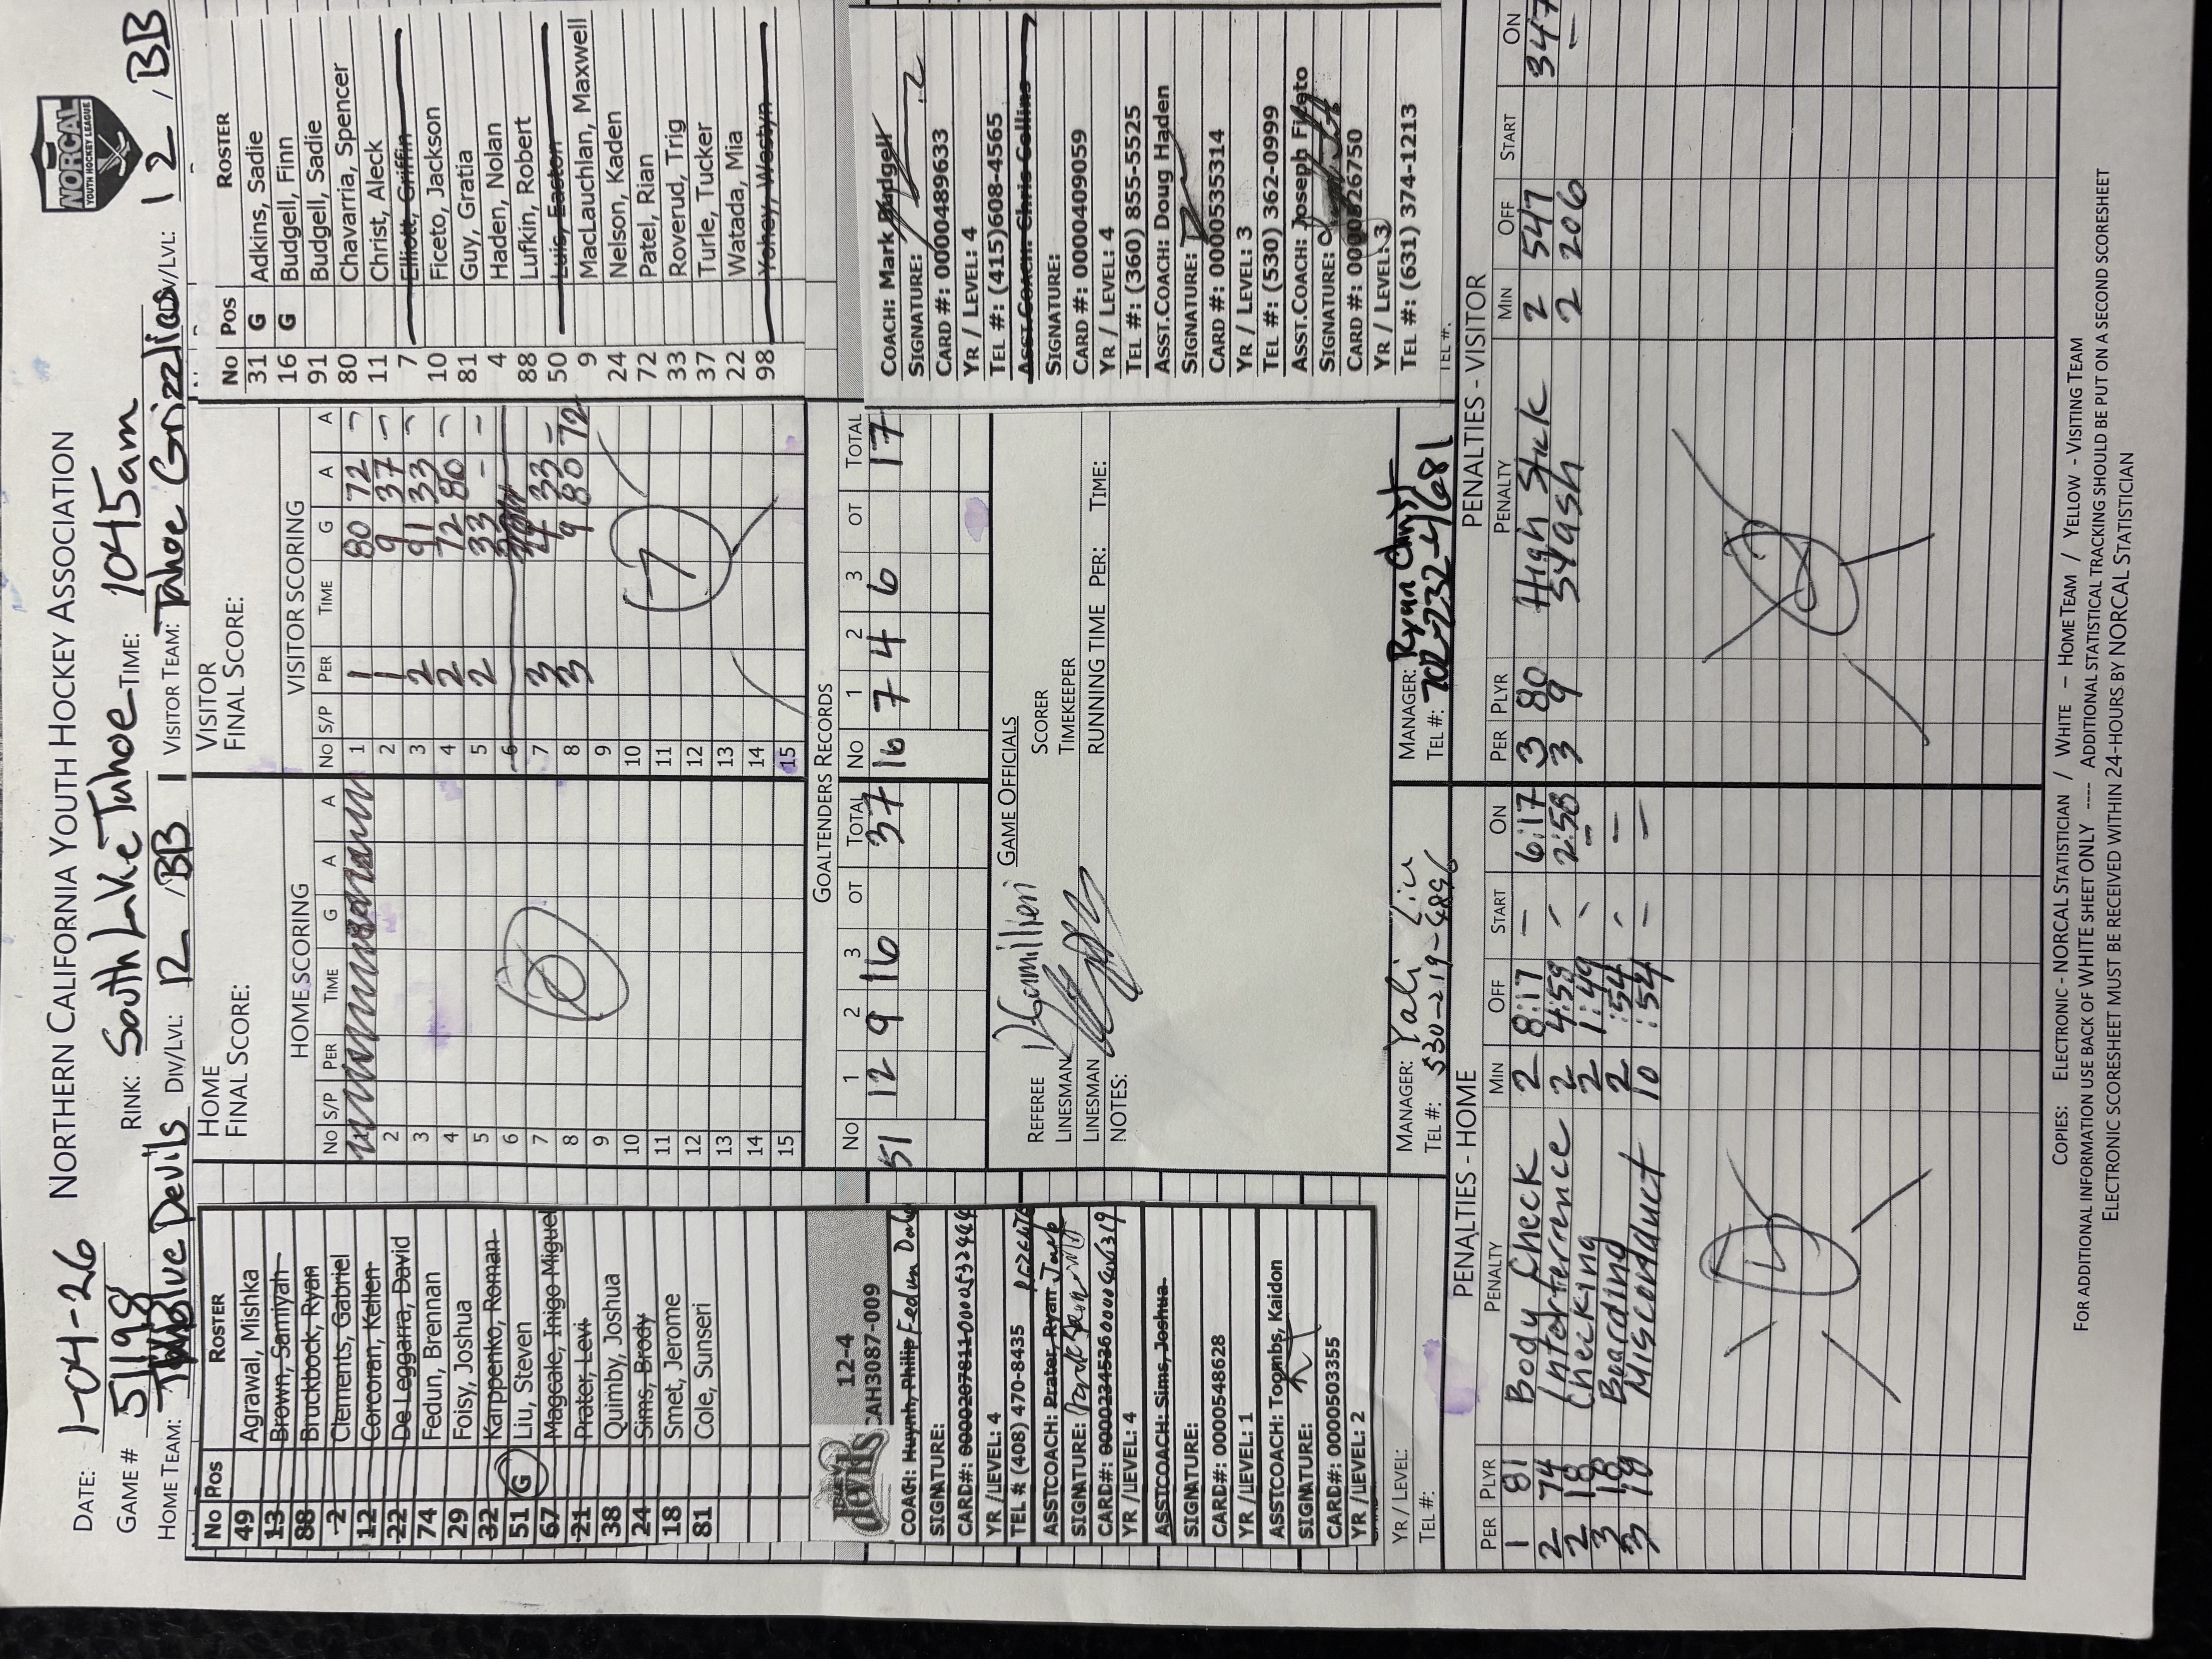 DATE: 1-04-26 NORTHERN CALIFORNIA YOUTH HOCKEY ASSOCIATION
NORCAL
YOUTH HOCKEY LEAGUE
GAME # 5198 RINK: South Lake Tahoe TIME: 1045am
HOME TEAM: Blue Devils DIV/LVL: 12 / BB VISITOR TEAM: Tahoe Grizzlies DIV/LVL: 12 / BB
No Pos ROSTER
49 Agrawal, Mishka
13 Brown, Samiyah
88 Bruckbock, Ryan
2 Clements, Gabriel
12 Corcoran, Kellen
22 De Leggarra, David
74 Fedun, Brennan
29 Foisy, Joshua
32 Karppenko, Roman
51 G Liu, Steven
67 Magcale, Inigo Miguel
21 Prater, Levi
38 Quimby, Joshua
24 Sims, Brody
18 Smet, Jerome
81 Cole, Sunseri
HOME
FINAL SCORE:
HOME SCORING
No S/P PER TIME G A A
1
2
3
4
5
6
7
8
9
10
11
12
13
14
15
0
VISITOR
FINAL SCORE:
VISITOR SCORING
No S/P PER TIME G A A
1 1 80 72 -
2 1 9 37 -
3 2 91 33 -
4 2 72 80 -
5 2 33 - -
6
7 3 4 33 -
8 3 9 80 72
9
10
11
12
13
14
15
7
No Pos ROSTER
31 G Adkins, Sadie
16 G Budgell, Finn
91 Budgell, Sadie
80 Chavarria, Spencer
11 Christ, Aleck
7 Elliott, Griffin
10 Ficeto, Jackson
81 Guy, Gratia
4 Haden, Nolan
88 Lufkin, Robert
50 Luis, Easton
9 MacLauchlan, Maxwell
24 Nelson, Kaden
72 Patel, Rian
33 Roverud, Trig
37 Turle, Tucker
22 Watada, Mia
98 Yohey, Westyn
12-4
CAH3087-009
COACH: Huynh, Philip Fedun
SIGNATURE:
CARD#: 0000207811
YR /LEVEL: 4
TEL # (408) 470-8435
ASSTCOACH: Prater, Ryan
SIGNATURE:
CARD#: 0000234536
YR /LEVEL: 4
ASSTCOACH: Sims, Joshua
SIGNATURE:
CARD#: 0000548628
YR /LEVEL: 1
ASSTCOACH: Toombs, Kaidon
SIGNATURE:
CARD#: 0000503355
YR /LEVEL: 2
YR / LEVEL:
TEL #:
GOALTENDERS RECORDS
No 1 2 3 OT TOTAL No 1 2 3 OT TOTAL
51 12 9 16 37 16 7 4 6 17
GAME OFFICIALS
REFEREE SCORER
LINESMAN TIMEKEEPER
LINESMAN RUNNING TIME PER: TIME:
NOTES:
MANAGER: Yali Liu MANAGER: Ryan Christ
TEL #: 530-219-4896 TEL #: 702-232-4681
COACH: Mark Budgell
SIGNATURE:
CARD #: 0000489633
YR / LEVEL: 4
TEL #: (415)608-4565
ASST.COACH: Chris Collins
SIGNATURE:
CARD #: 0000409059
YR / LEVEL: 4
TEL #: (360) 855-5525
ASST.COACH: Doug Haden
SIGNATURE:
CARD #: 0000535314
YR / LEVEL: 3
TEL #: (530) 362-0999
ASST.COACH: Joseph Ficeto
SIGNATURE:
CARD #: 0000526750
YR / LEVEL: 3
TEL #: (631) 374-1213
TEL #:
PENALTIES - HOME
PER PLYR PENALTY MIN OFF START ON
1 81 Body Check 2 8:17 - 6:17
2 74 Interference 2 4:59 - 2:58
2 18 Checking 2 1:49 -
3 18 Boarding 2 :54 - -
3 18 Misconduct 10 :54 - -
PENALTIES - VISITOR
PER PLYR PENALTY MIN OFF START ON
3 80 High Stick 2 547 347
3 9 Slash 2 206 -
COPIES: ELECTRONIC - NORCAL STATISTICIAN / WHITE - HOME TEAM / YELLOW - VISITING TEAM
FOR ADDITIONAL INFORMATION USE BACK OF WHITE SHEET ONLY ---- ADDITIONAL STATISTICAL TRACKING SHOULD BE PUT ON A SECOND SCORESHEET
ELECTRONIC SCORESHEET MUST BE RECEIVED WITHIN 24-HOURS BY NORCAL STATISTICIAN